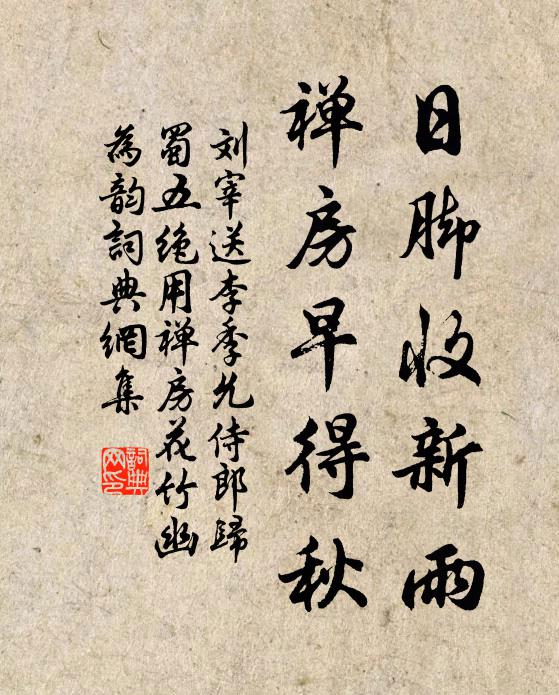 日脚收新雨
禅房早得秋
刘宰送李季允侍郎歸
蜀五绝用禅房花竹幽
為韵詞典網集
詞典网印